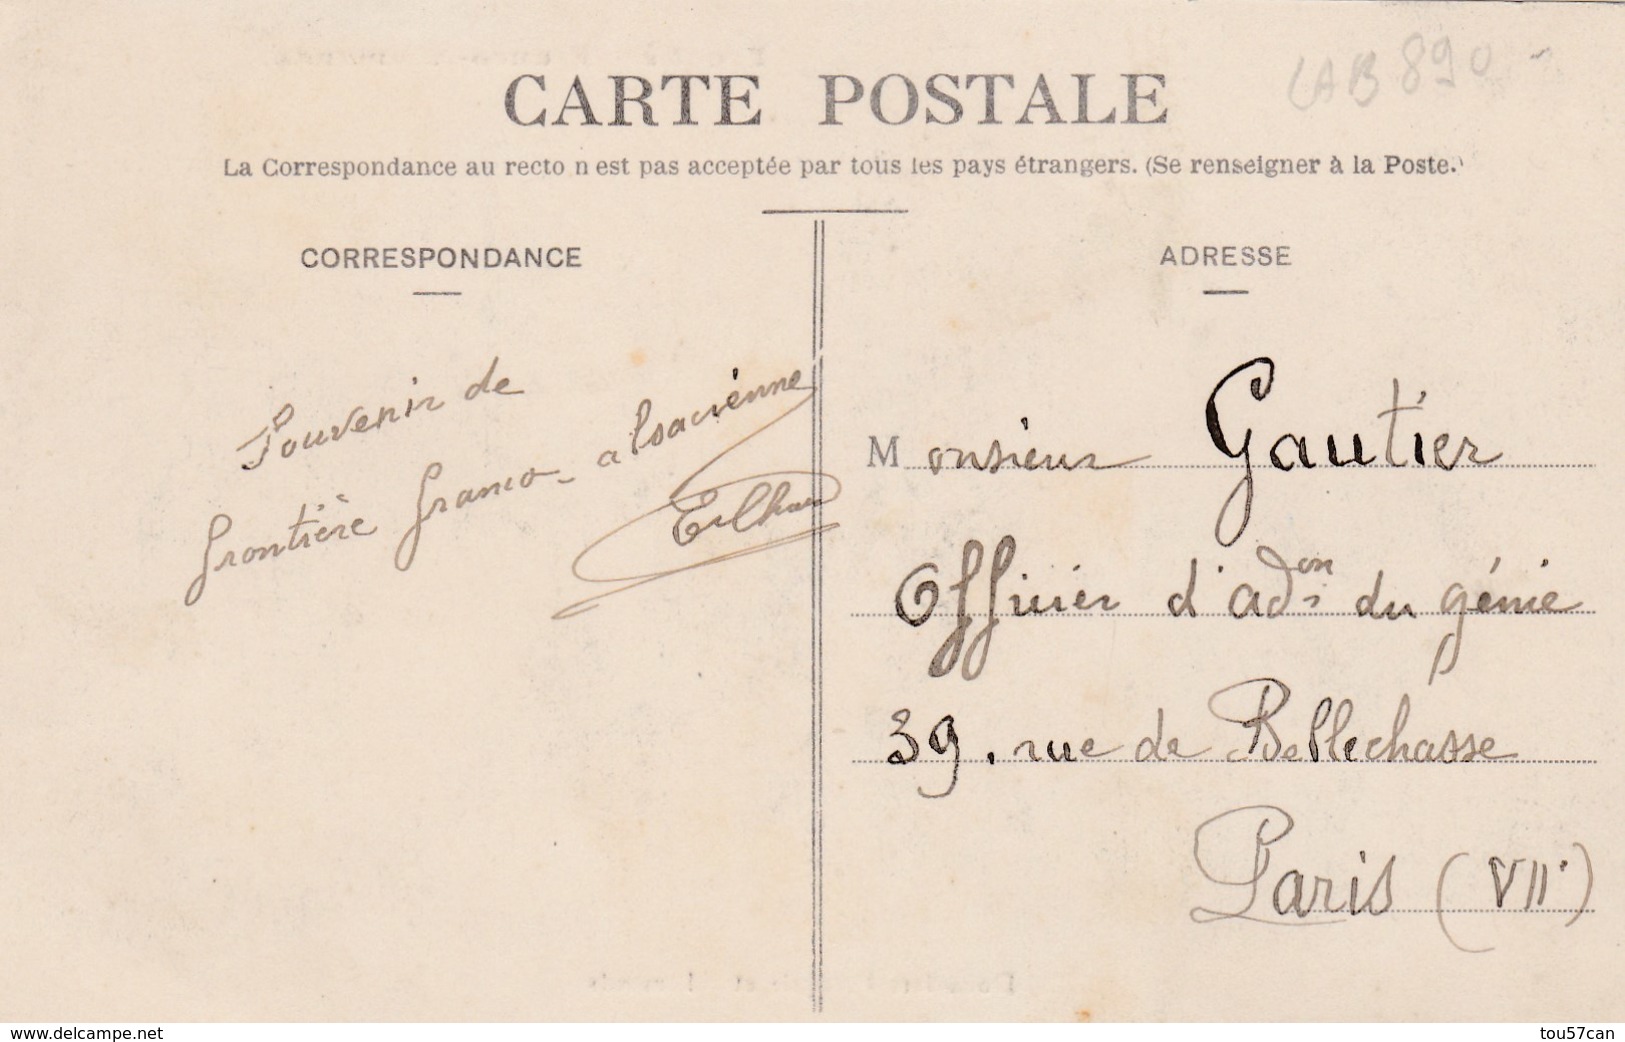 LAB 890
CARTE POSTALE
La Correspondance au recto n'est pas acceptée par tous les pays étrangers. (Se renseigner à la Poste.)
CORRESPONDANCE
Souvenir de
frontière franco-alsacienne
ADRESSE
Monsieur Gautier
Officier d'adon du génie
39, rue de Bellechasse
Paris (VIIe)
www.delcampe.net
tou57can